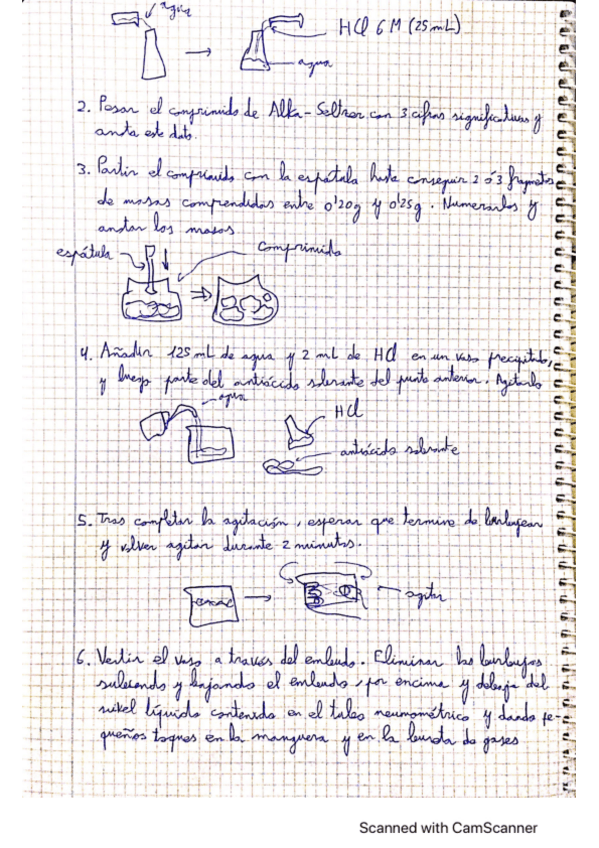 agua
HCl 6 M (25 mL)
agua
2. Pesar el comprimido de Alka-Seltzer con 3 cifras significativas y
anota este dato.
3. Partir el comprimido con la espátula hasta conseguir 2 ó 3 fragmentos
de masas comprendidas entre 0'20g y 0'25g. Numerarlos y
anotar las masas
espátula
comprimido
4. Añadir 125 mL de agua y 2 mL de HCl en un vaso precipitado,
y luego parte del antiácido sobrante del punto anterior. Agitarlo
agua
HCl
antiácido sobrante
5. Tras completar la agitación, esperar que termine de burbujear
y volver agitar durante 2 minutos.
agitar
6. Vertir el vaso a través del embudo. Eliminar las burbujas
subiendo y bajando el embudo, por encima y debajo del
nivel líquido contenido en el tubo neumométrico y dando pe-
queños toques en la manguera y en la bureta de gases
Scanned with CamScanner